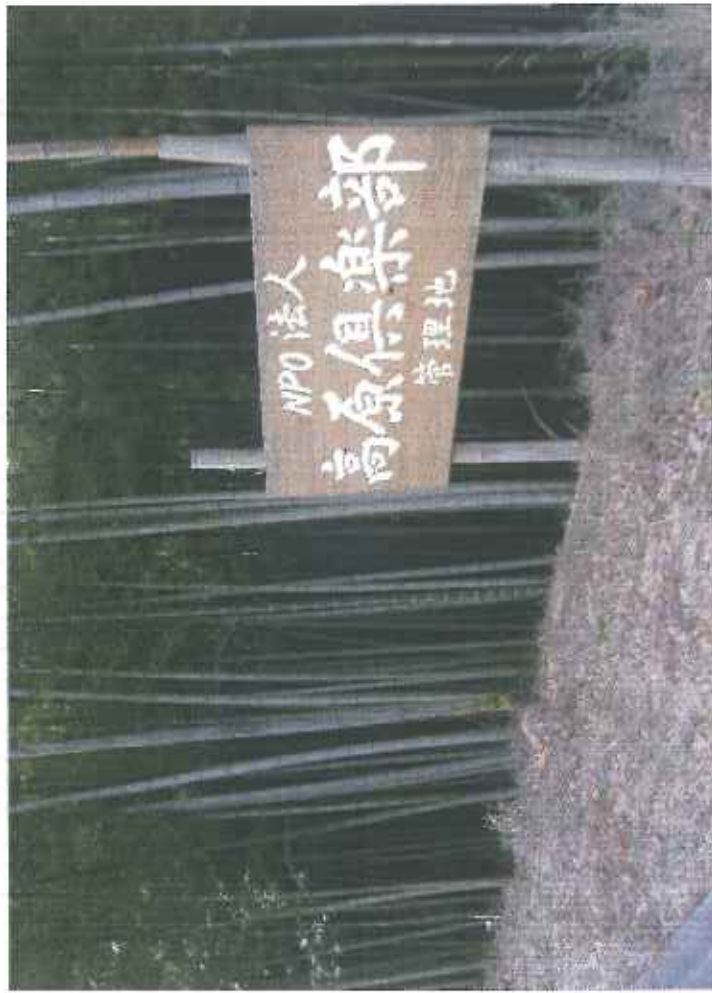 NPO法人
高原倶楽部
管理地